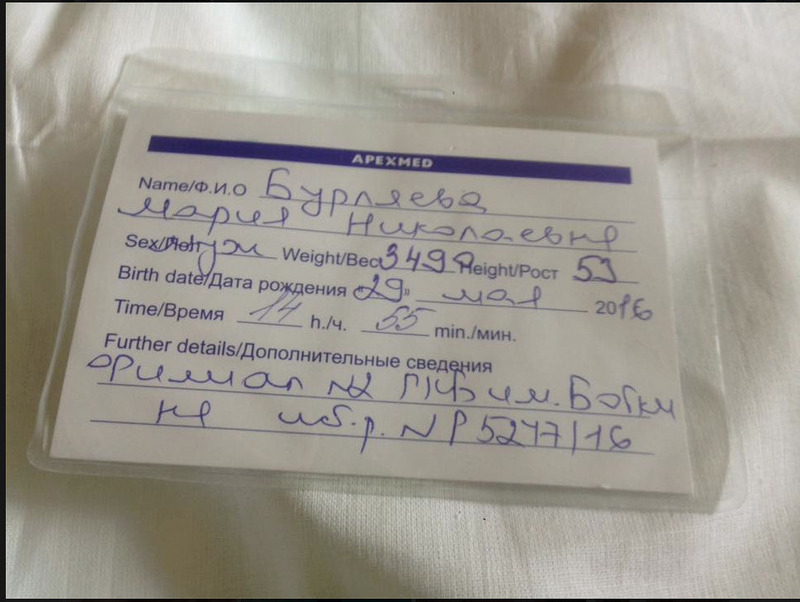 APEXMED
Name/Ф.И.О Бурляева
Мария Николаевна
Sex/Пол муж Weight/Вес 3490 Height/Рост 53
Birth date/Дата рождения «29» мая 2016
Time/Время 14 h./ч. 55 min./мин.
Further details/Дополнительные сведения
Филиал №2 ГКБ им. Ботки
на и.б.р. N Р5247/16